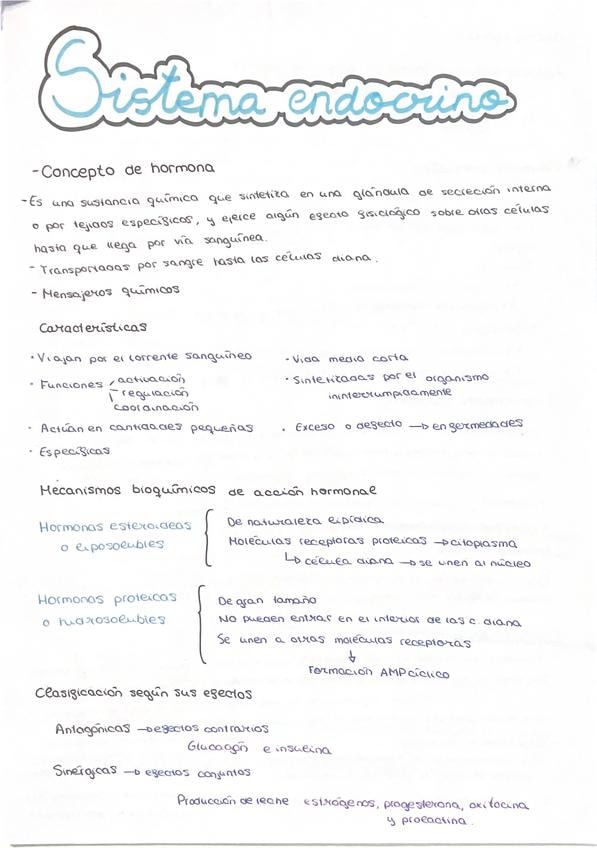 Sistema endocrino
- Concepto de hormona
- Es una sustancia química que sintetiza en una glándula de secreción interna
o por tejidos específicos, y ejerce algún efecto fisiológico sobre otras células
hasta que llega por vía sanguínea.
- Transportadas por sangre hasta las células diana.
- Mensajeros químicos
Características
· Viajan por el torrente sanguíneo
· Funciones activación
regulación
coordinación
· Actúan en cantidades pequeñas
· Específicas
· Vida media corta
· Sintetizadas por el organismo
ininterrumpidamente
· Exceso o defecto → enfermedades
Mecanismos bioquímicos de acción hormonal
Hormonas esteroideas
o liposolubles
De naturaleza lipídica
Moléculas receptoras proteicas → citoplasma
↳ célula diana → se unen al núcleo
Hormonas proteicas
o hidrosolubles
De gran tamaño
No pueden entrar en el interior de las c. diana
Se unen a otras moléculas receptoras
↓
Formación AMP cíclico
Clasificación según sus efectos
Antagónicas → efectos contrarios
Glucagón e insulina
Sinérgicas → efectos conjuntos
Producción de leche estrógenos, progesterona, oxitocina
y prolactina.